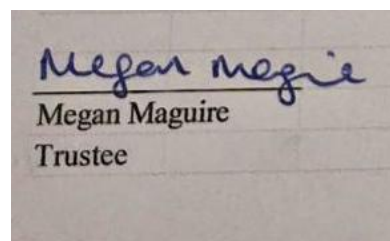 Megan Maguire
Megan Maguire
Trustee